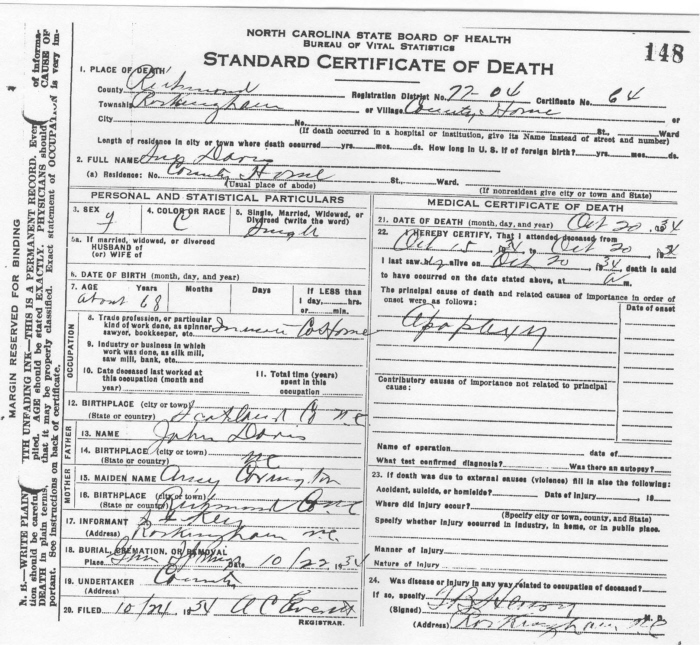 NORTH CAROLINA STATE BOARD OF HEALTH
BUREAU OF VITAL STATISTICS
148
STANDARD CERTIFICATE OF DEATH
MARGIN RESERVED FOR BINDING
N. B.—WRITE PLAIN ITH UNFADING INK—THIS IS A PERMANENT RECORD. Ever of informa-
tion should be careful plied. AGE should be stated EXACTLY. PHYSICIANS should CAUSE OF
DEATH in plain terms, that it may be properly classified. Exact statement of OCCUPAT is very im-
portant. See instructions on back of certificate.
1. PLACE OF DEATH
County Richmond Registration District No. 77-04 Certificate No. 64
Township Rockingham or Village County Home or
City No. St., Ward
(If death occurred in a hospital or institution, give its Name instead of street and number)
Length of residence in city or town where death occurred yrs. mos. ds. How long in U. S. if of foreign birth? yrs. mos. ds.
2. FULL NAME Davis
(a) Residence: No. County Home St., Ward.
(Usual place of abode) (If nonresident give city or town and State)
PERSONAL AND STATISTICAL PARTICULARS
3. SEX F 4. COLOR OR RACE C 5. Single, Married, Widowed, or Divorced (write the word) Single
5a. If married, widowed, or divorced
HUSBAND of
(or) WIFE of
6. DATE OF BIRTH (month, day, and year)
7. AGE Years Months Days If LESS than
about 68 1 day, hrs.
or min.
OCCUPATION
8. Trade, profession, or particular
kind of work done, as spinner,
sawyer, bookkeeper, etc. Co Home
9. Industry or business in which
work was done, as silk mill,
saw mill, bank, etc.
10. Date deceased last worked at
this occupation (month and
year)
11. Total time (years)
spent in this
occupation
12. BIRTHPLACE (city or town)
(State or country) Scotland Co N.C.
FATHER
13. NAME John Davis
14. BIRTHPLACE (city or town)
(State or country) NC
MOTHER
15. MAIDEN NAME Covington
16. BIRTHPLACE (city or town)
(State or country) Richmond Co NC
17. INFORMANT Key
(Address) Rockingham NC
18. BURIAL, CREMATION, OR REMOVAL
Place Date 10/22 1934
19. UNDERTAKER County
(Address)
20. FILED 10/24 1934 A C Everett
REGISTRAR.
MEDICAL CERTIFICATE OF DEATH
21. DATE OF DEATH (month, day, and year) Oct 20 1934
22. I HEREBY CERTIFY, That I attended deceased from
Oct 15 1934 to Oct 20 1934
I last saw alive on Oct 20 1934 death is said
to have occurred on the date stated above, at m.
The principal cause of death and related causes of importance in order of
onset were as follows: Date of onset
Apoplexy
Contributory causes of importance not related to principal
cause:
Name of operation date of
What test confirmed diagnosis? Was there an autopsy?
23. If death was due to external causes (violence) fill in also the following:
Accident, suicide, or homicide? Date of injury 19
Where did injury occur?
(Specify city or town, county, and State)
Specify whether injury occurred in industry, in home, or in public place.
Manner of injury
Nature of injury
24. Was disease or injury in any way related to occupation of deceased?
If so, specify
(Signed) M. D.
(Address) Rockingham NC